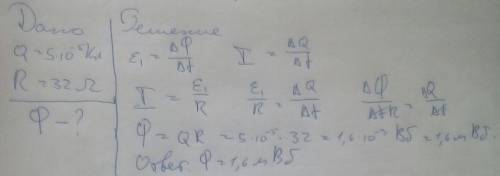 Дано Решение
Q = 5·10⁻⁵ Кл
R = 32 Ω
Φ – ?
ε₁ = ΔΦ/Δt I = ΔQ/Δt
I = ε₁/R ε₁/R = ΔQ/Δt ΔΦ/ΔtR = ΔQ/Δt
Φ = QR = 5·10⁻⁵·32 = 1,6·10⁻³ Вб = 1,6 м Вб
Ответ: Φ = 1,6 м Вб